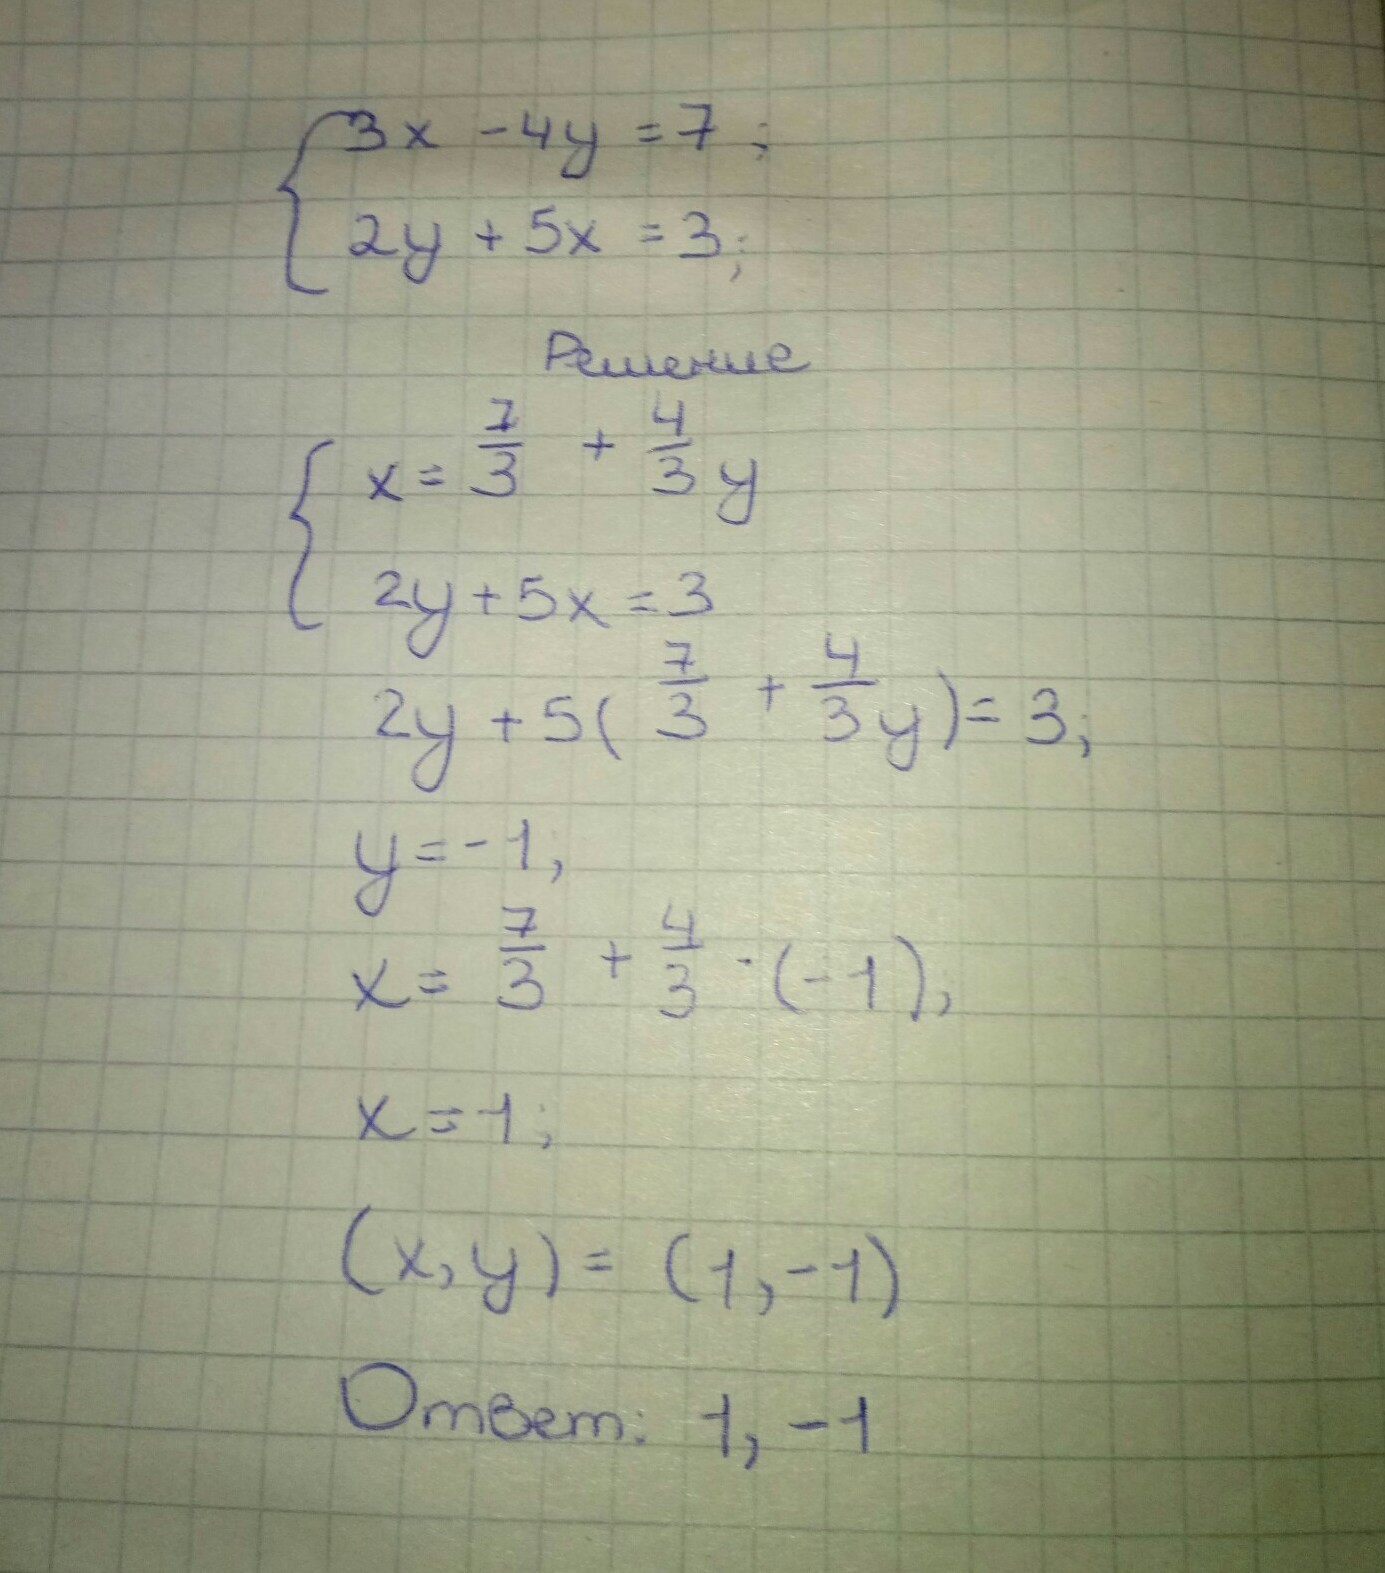 3x - 4y = 7;
2y + 5x = 3;
Решение
x = 7/3 + 4/3 y
2y + 5x = 3
2y + 5( 7/3 + 4/3 y) = 3;
y = -1;
x = 7/3 + 4/3 · (-1);
x = 1;
(x, y) = (1, -1)
Ответ: 1, -1